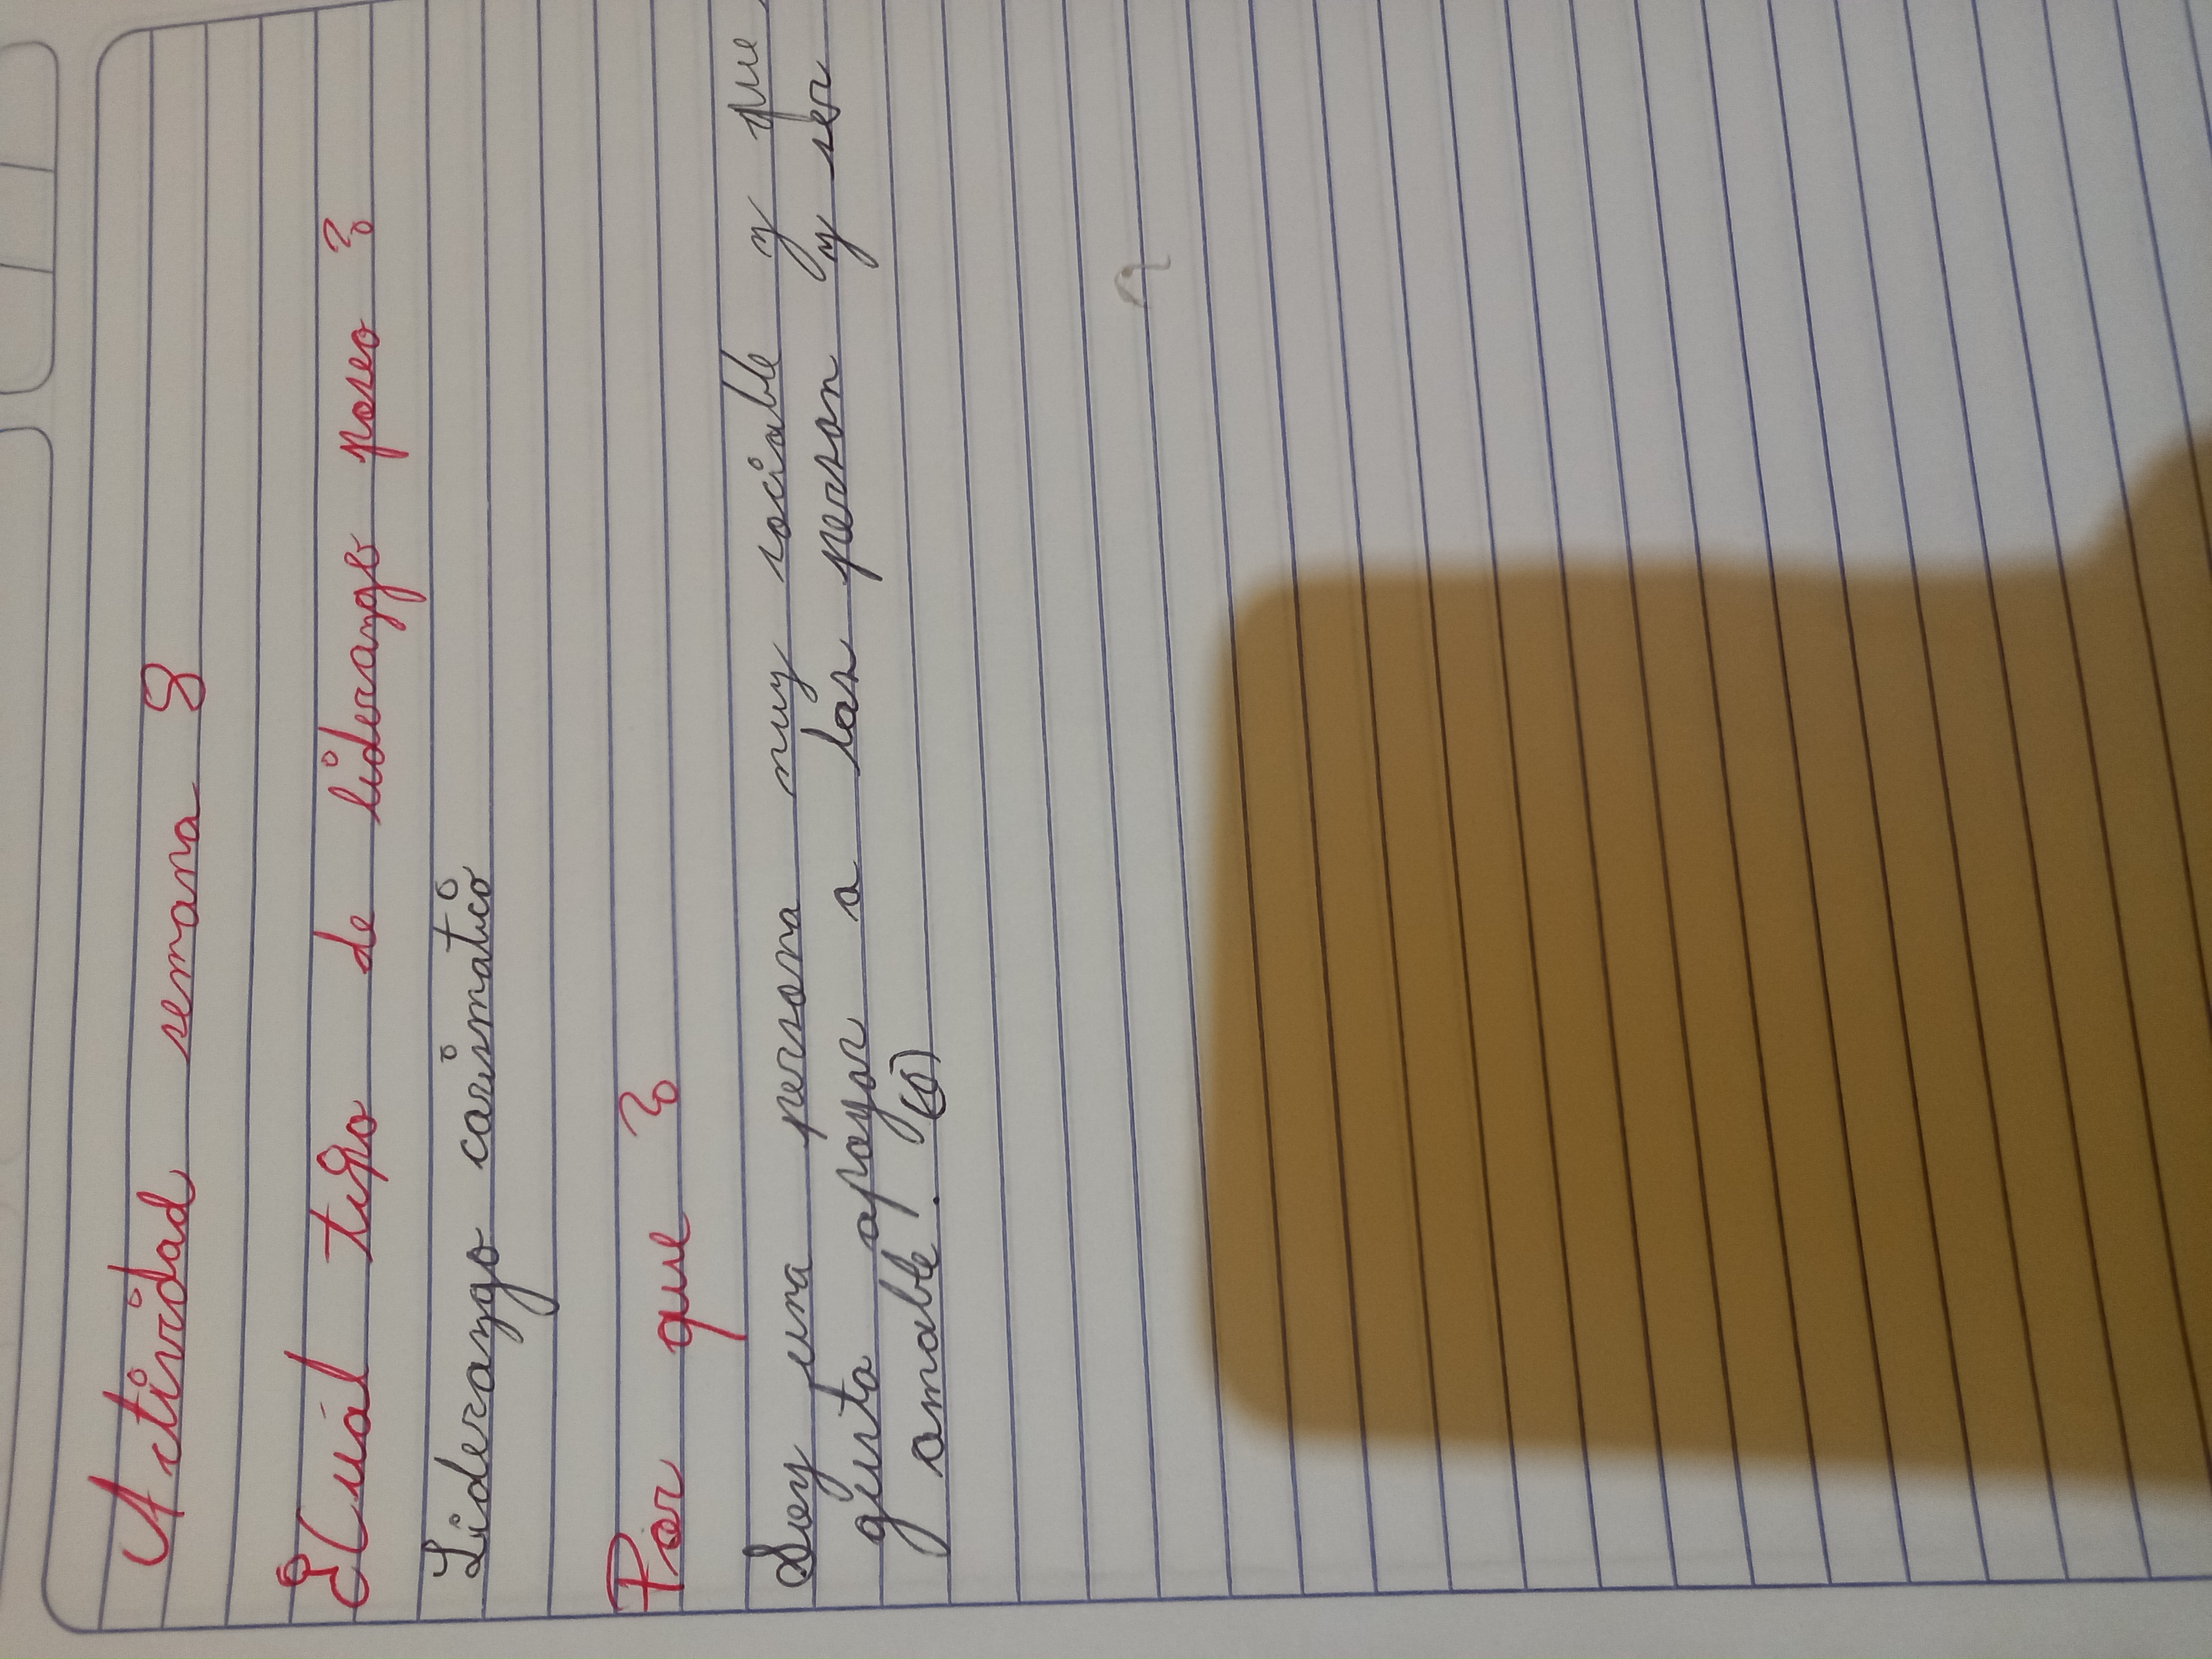 Actividad semana 8
¿Cuál tipo de liderazgo poseo?
Liderazgo carismatico
Por que?
Soy una persona muy sociable y que
gusta apoyar a las person y ser
amable.